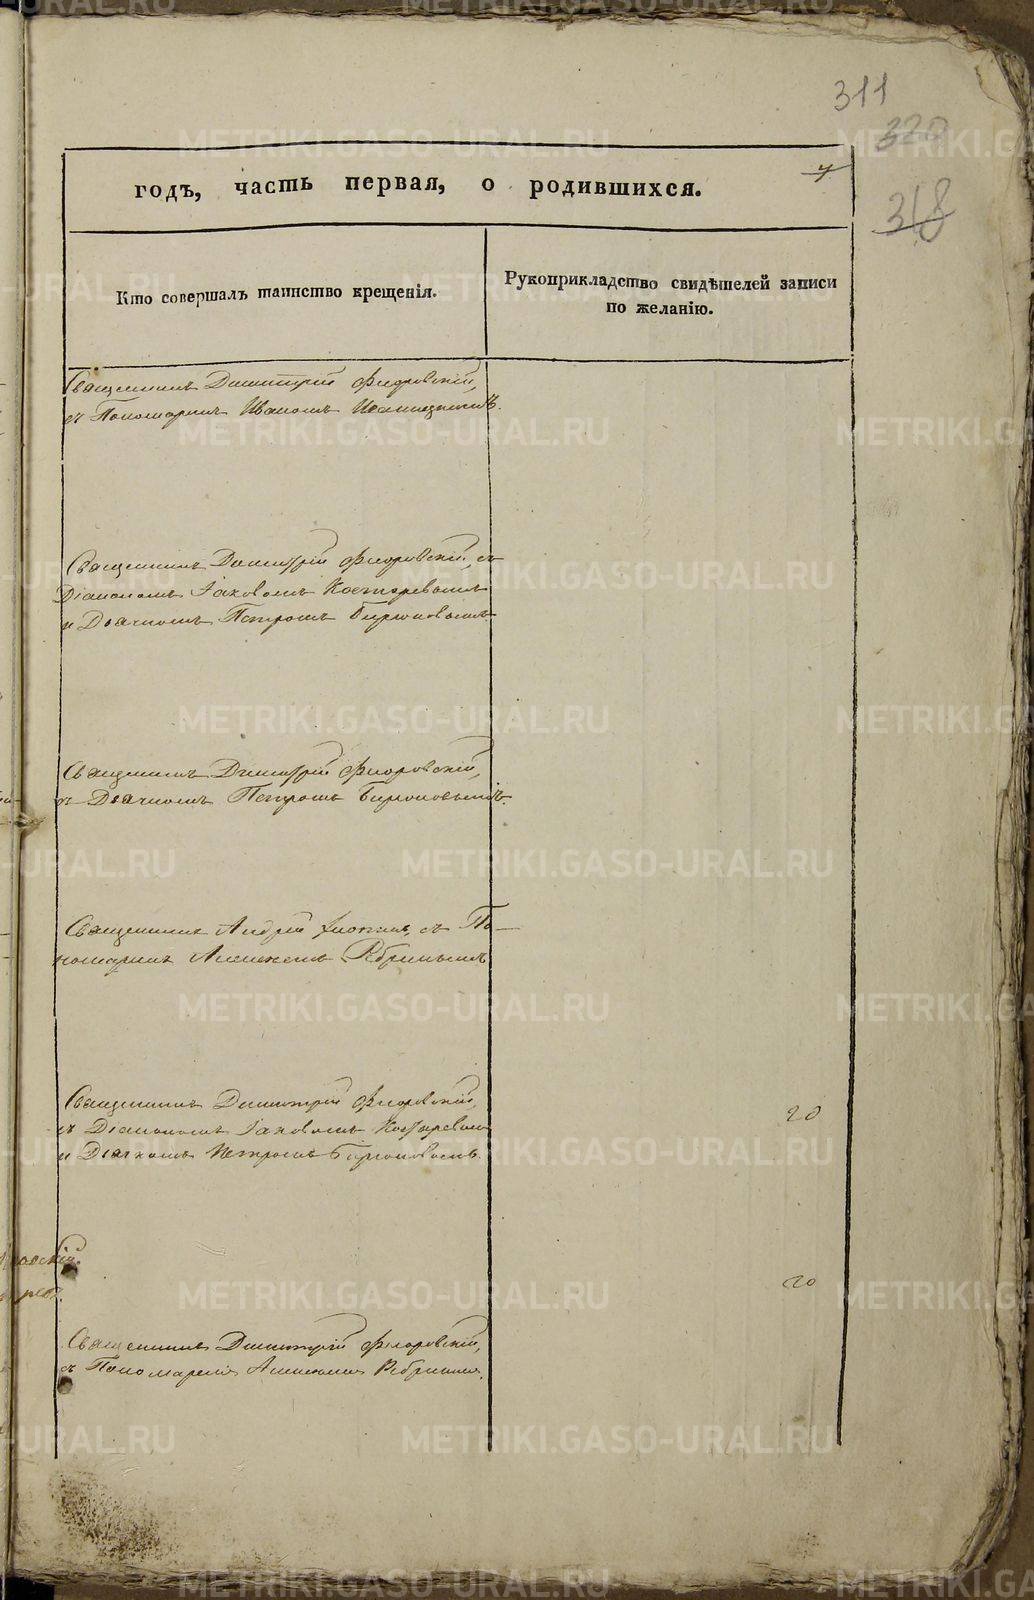 311
320
318
7
годъ, часть первая, о родившихся.
Кто совершалъ таинство крещенія.
Рукоприкладство свидѣтелей записи
по желанію.
Священникъ Димитрій Флоровскій,
съ Пономаремъ Иваномъ
Священникъ Димитрій Флоровскій, съ
Діакономъ Іаковомъ Костаревымъ
и Дьячкомъ Петромъ Бирюковымъ
Священникъ Димитрій Флоровскій,
съ Дьячкомъ Петромъ Бирюковымъ.
Священникъ Андрей съ По-
номаремъ Алексеемъ Ребринымъ
Священникъ Димитрій Флоровскій,
съ Діакономъ Іаковомъ Костаревымъ
20
и Дьячкомъ Петромъ Бирюковымъ.
20
Священникъ Димитрій Флоровскій,
съ Пономаремъ Алексеемъ Ребринымъ.
METRIKI.GASO-URAL.RU